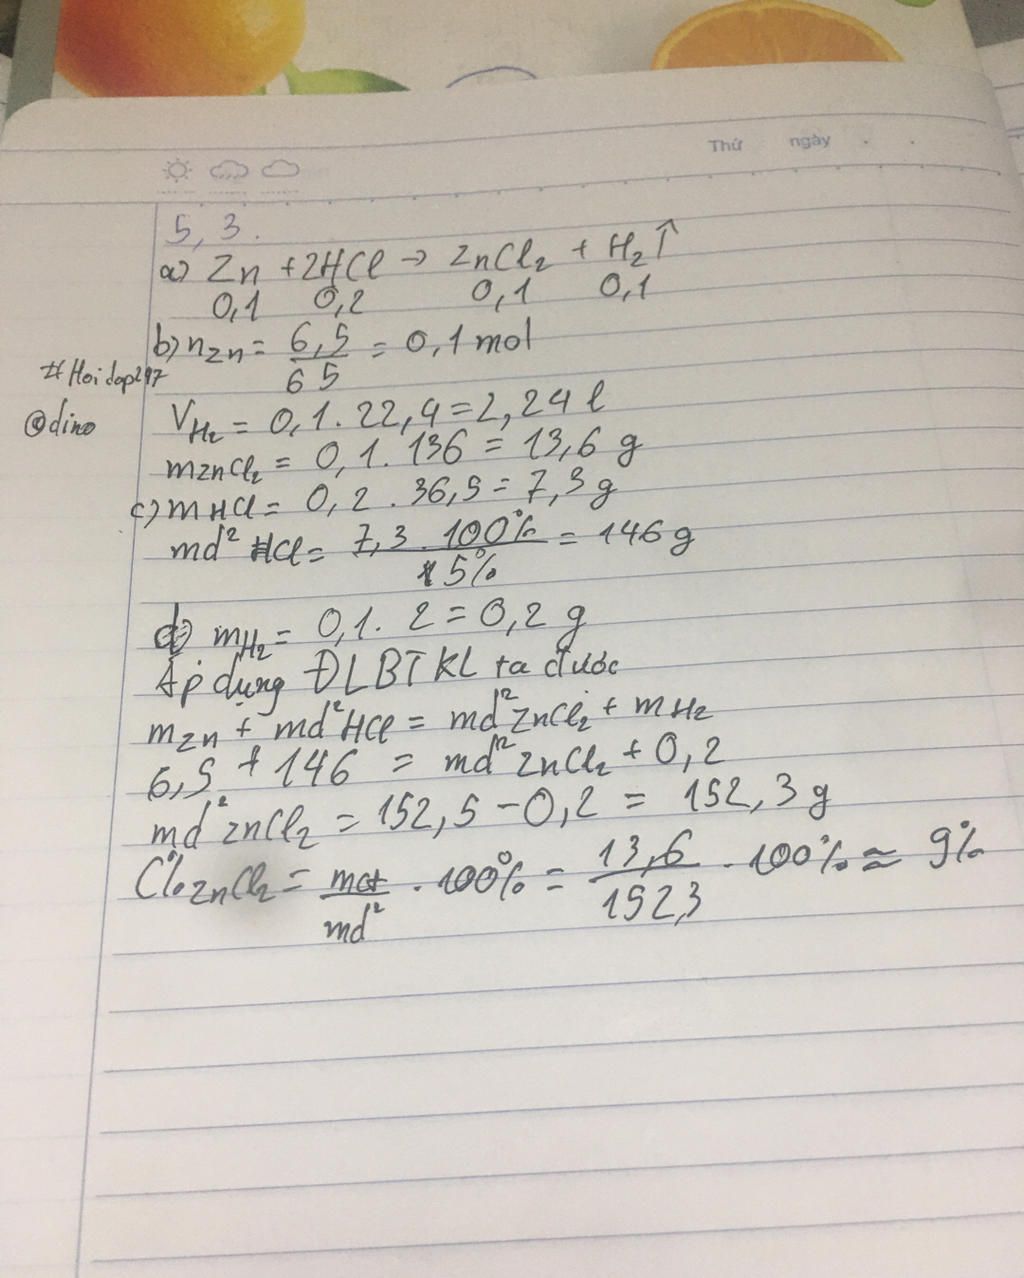 Thứ ngày
5, 3.
a) Zn + 2HCl → ZnCl₂ + H₂↑
0,1 0,2 0,1 0,1
b) nZn = 6,5 / 65 = 0,1 mol
#Hoidap247
@dino
VH₂ = 0,1. 22,4 = 2,24 l
mZnCl₂ = 0,1. 136 = 13,6 g
c) mHCl = 0,2 . 36,5 = 7,3 g
md² HCl = 7,3 . 100% / 5% = 146 g
d) mH₂ = 0,1. 2 = 0,2 g
Áp dụng ĐLBTKL ta được
mZn + md² HCl = md² ZnCl₂ + mH₂
6,5 + 146 = md² ZnCl₂ + 0,2
md² ZnCl₂ = 152,5 - 0,2 = 152,3 g
C% ZnCl₂ = mct / md² . 100% = 13,6 / 152,3 . 100% ≈ 9%